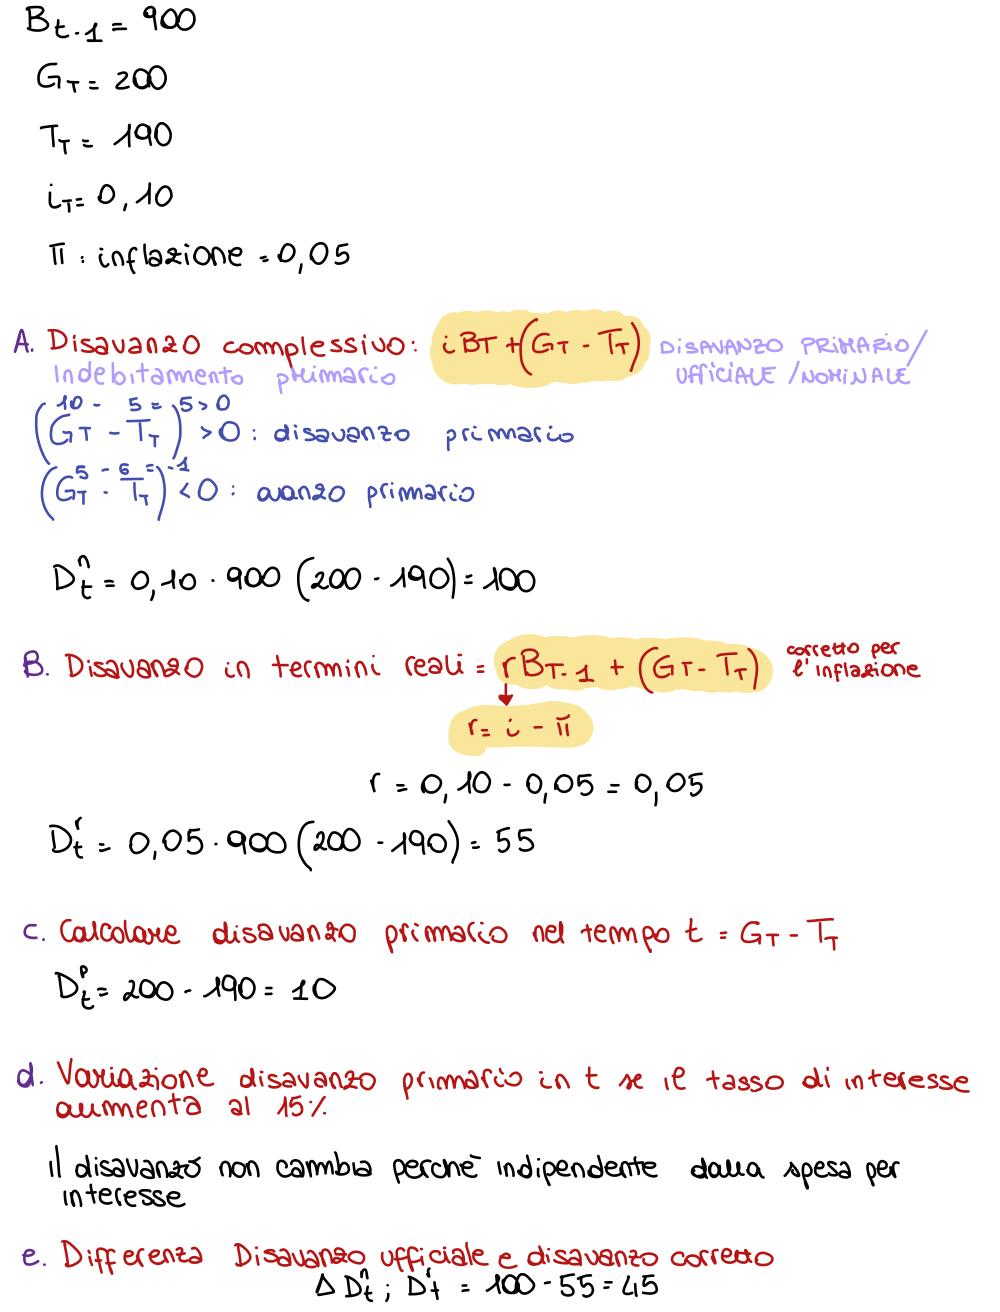 Bt-1 = 900
GT = 200
TT = 190
iT = 0,10
π : inflazione = 0,05
A. Disavanzo complessivo: iBT + (GT - TT) DISAVANZO PRIMARIO/
Indebitamento primario UFFICIALE/NOMINALE
10 - 5 = 5 > 0
(GT - TT) > 0 : disavanzo primario
5 - 6 = -1
(GT - TT) < 0 : avanzo primario
Dt^n = 0,10 · 900 (200 - 190) = 100
B. Disavanzo in termini reali = rBT-1 + (GT - TT) corretto per l'inflazione
↓
r = i - π
r = 0,10 - 0,05 = 0,05
Dt^r = 0,05 · 900 (200 - 190) = 55
c. Calcolare disavanzo primario nel tempo t = GT - TT
Dt^p = 200 - 190 = 10
d. Variazione disavanzo primario in t se il tasso di interesse
aumenta al 15%
il disavanzo non cambia perchè indipendente dalla spesa per
interesse
e. Differenza Disavanzo ufficiale e disavanzo corretto
Δ Dt^n ; Dt^r = 100 - 55 = 45